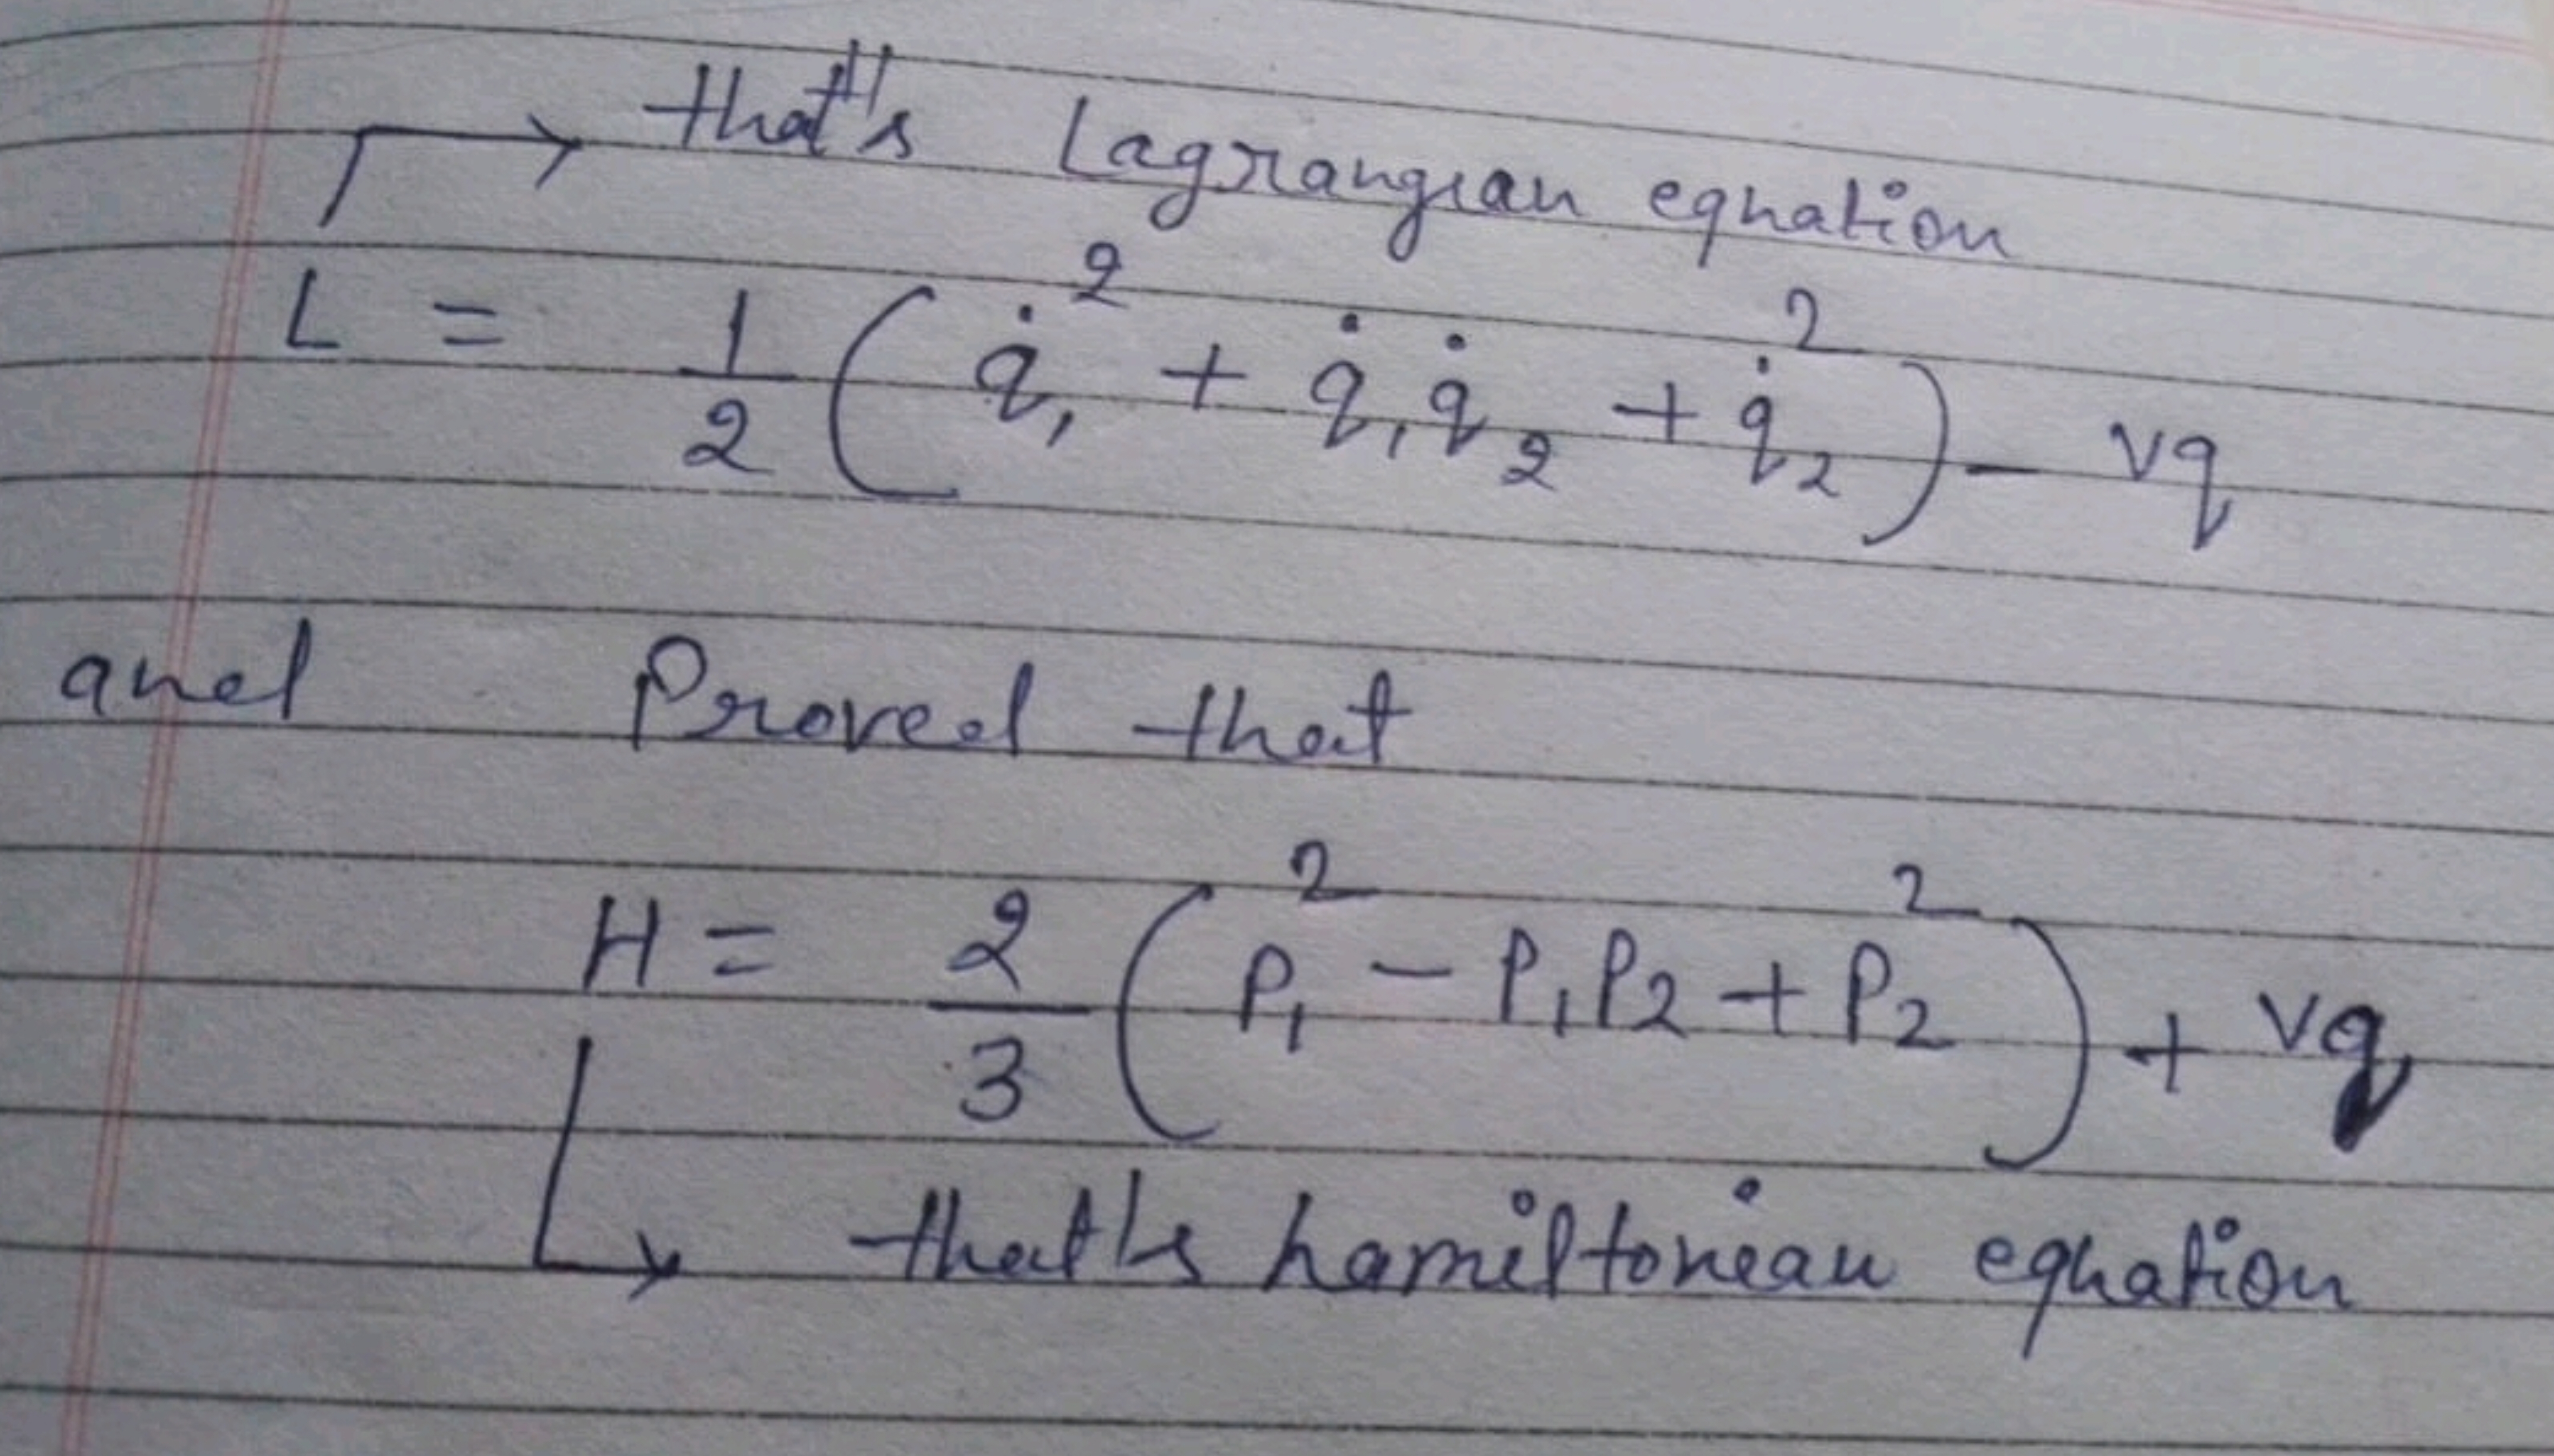 that's Lagrangian equation
L = 1/2 ( q̇₁² + q̇₁q̇₂ + q̇₂² ) - vq
and Proved that
H = 2/3 ( P₁² - P₁P₂ + P₂² ) + vq
that's hamiltonian equation